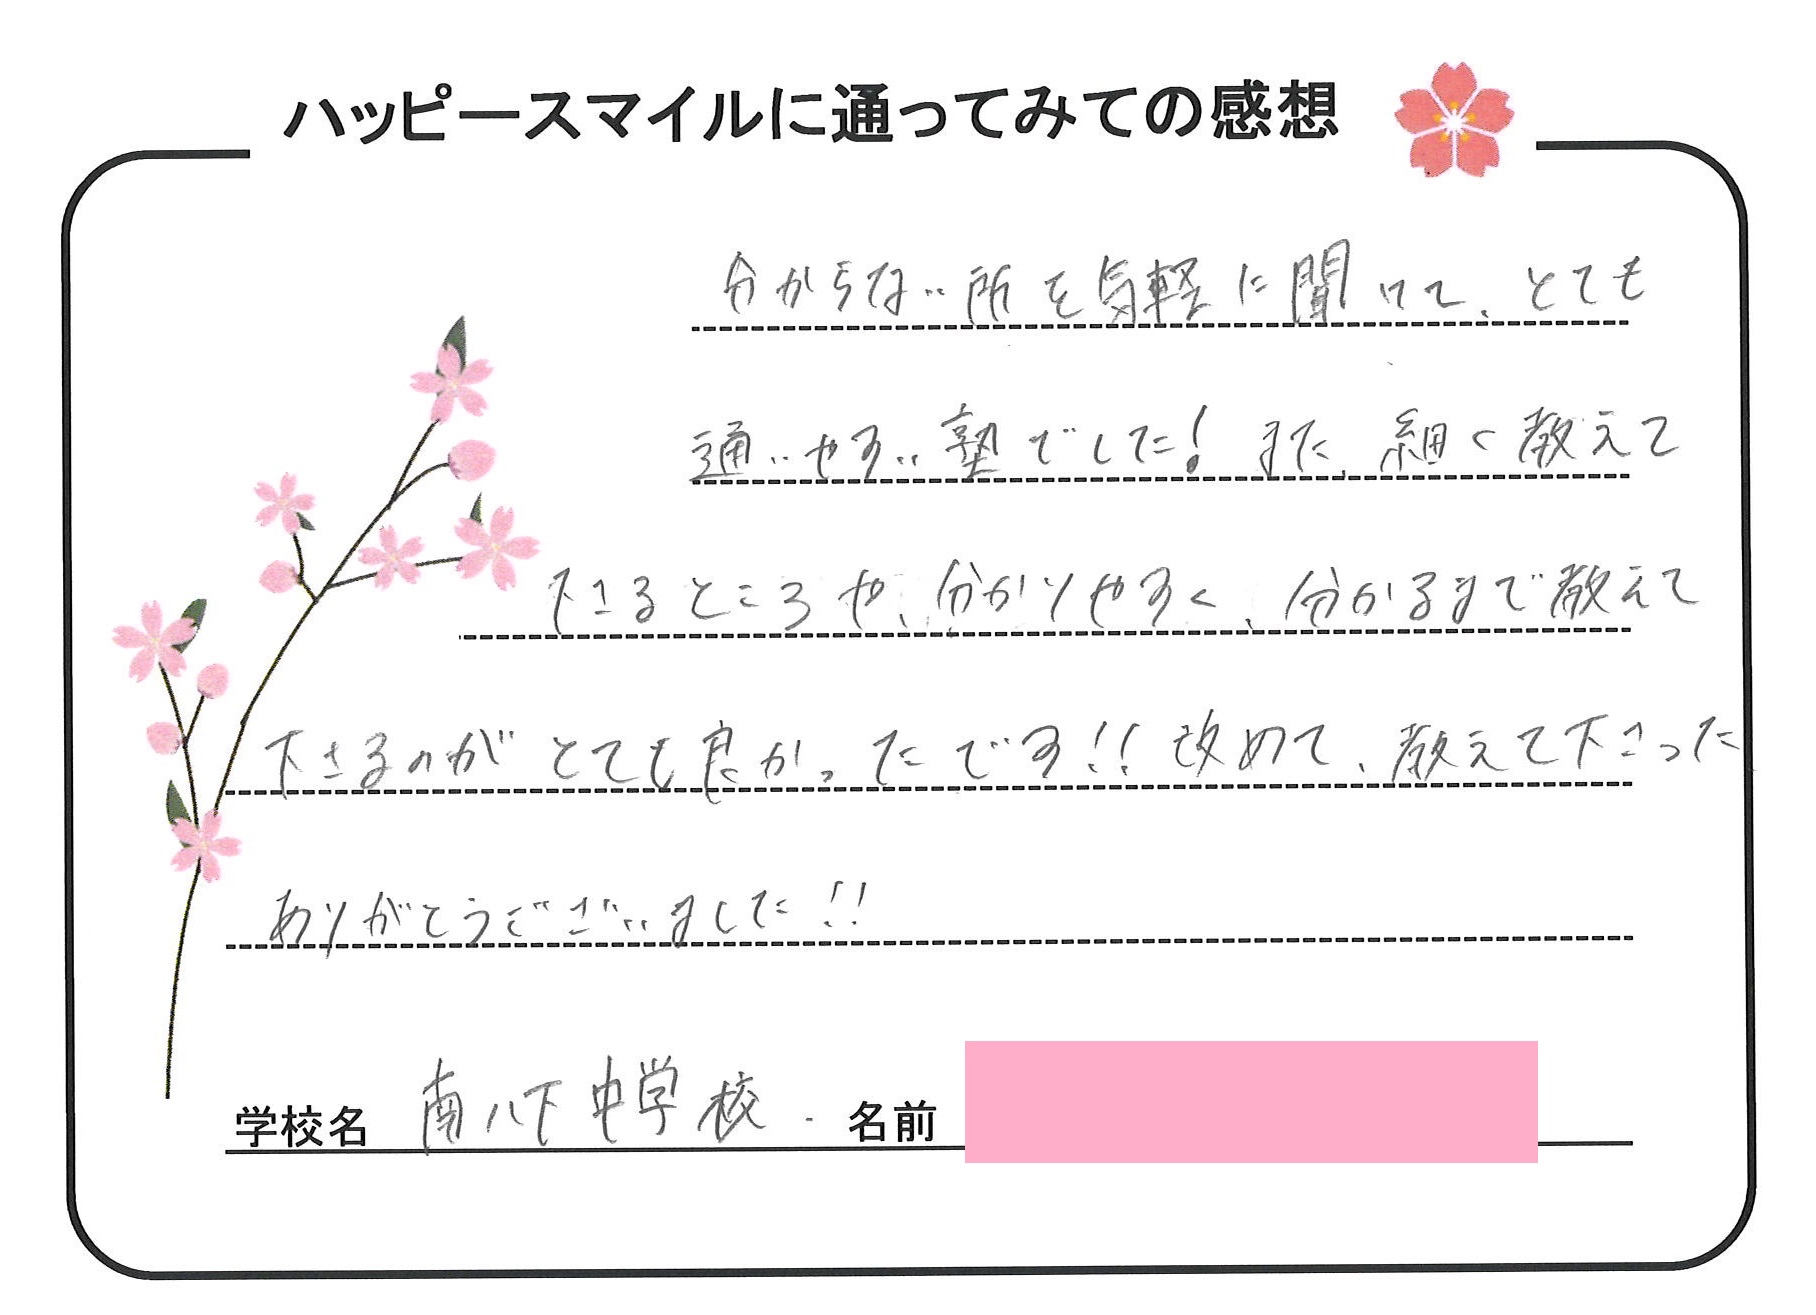 ハッピースマイルに通ってみての感想
分からない所を気軽に聞けて、とても
通いやすい塾でした！また、細く教えて
下さるところや、分かりやすく、分かるまで教えて
下さるのがとても良かったです！！改めて、教えて下さった
ありがとうございました！！
学校名 南八下中学校. 名前